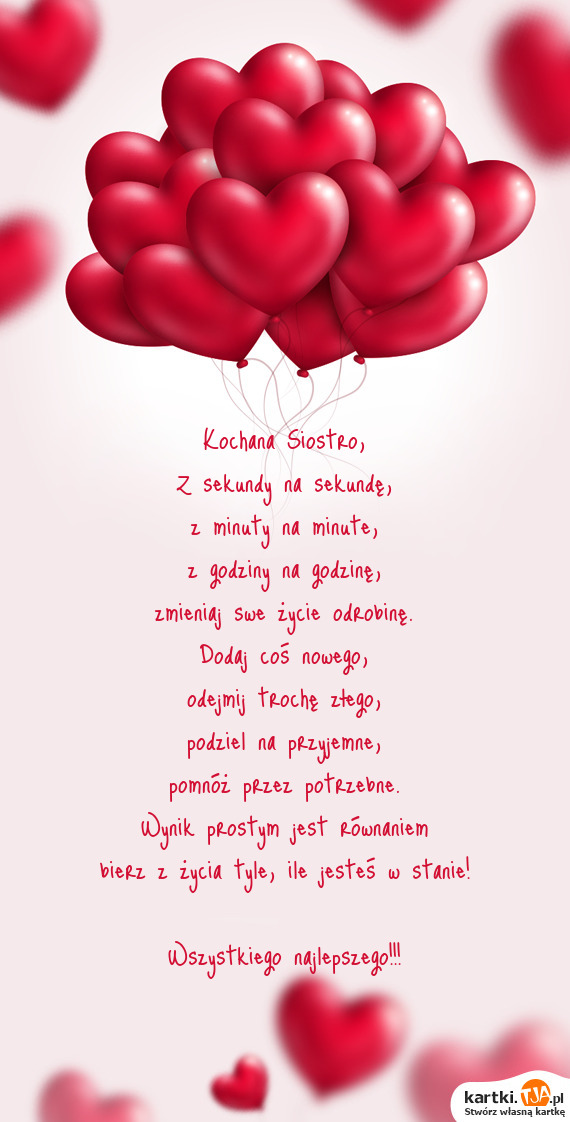 Kochana Siostro,
Z sekundy na sekundę,
z minuty na minute,
z godziny na godzinę,
zmieniaj swe życie odrobinę.
Dodaj coś nowego,
odejmij trochę złego,
podziel na przyjemne,
pomnóż przez potrzebne.
Wynik prostym jest równaniem
bierz z życia tyle, ile jesteś w stanie!
Wszystkiego najlepszego!!!
kartki.TJA.pl
Stwórz własną kartkę